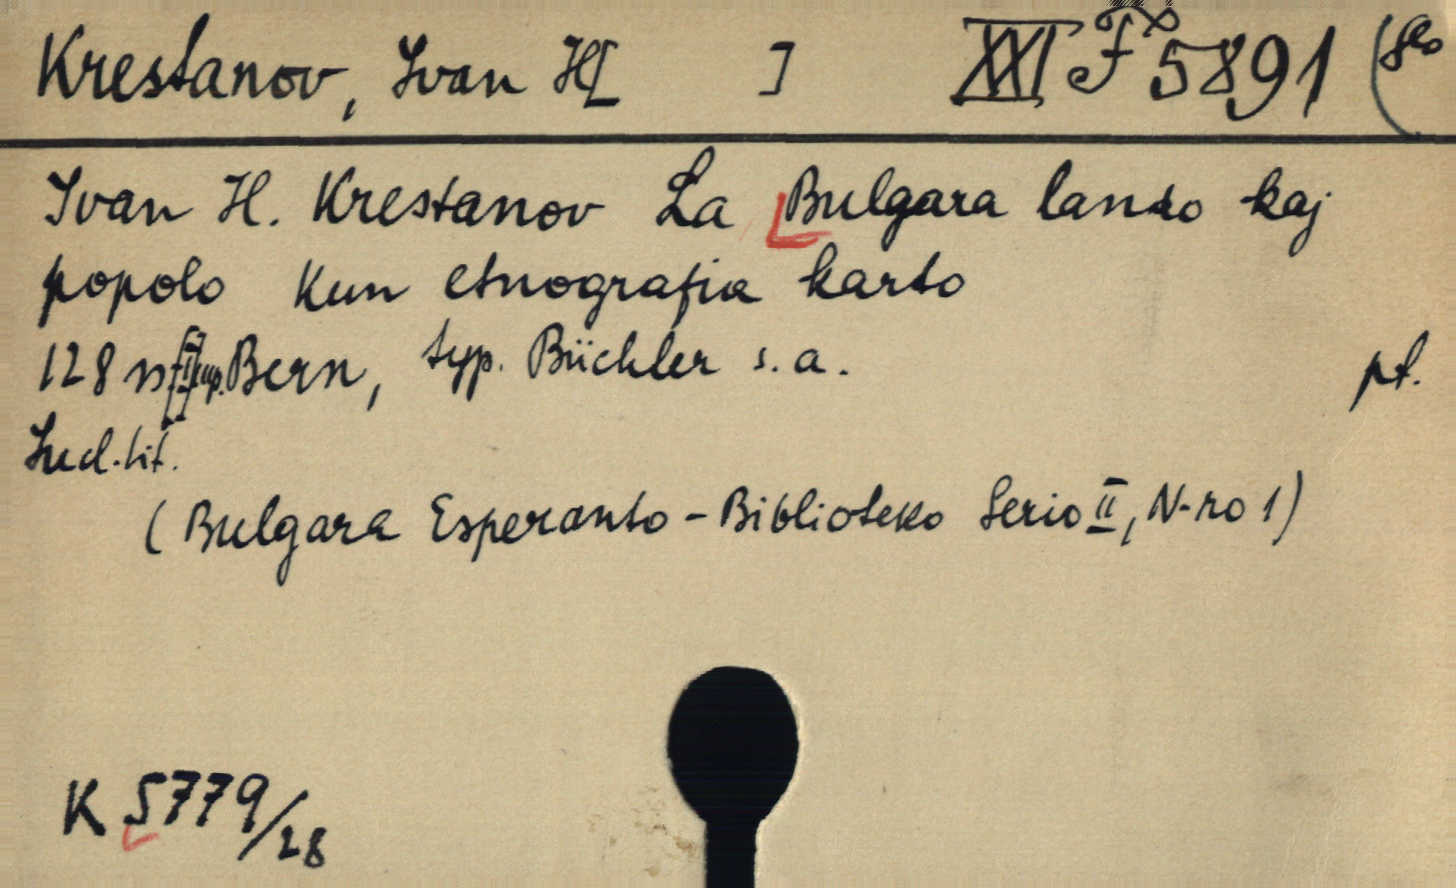 Krestanov, Ivan H[ ] XXI F 5891 (geo
Ivan H. Krestanov La Bulgara lando kaj
popolo Kun etnografia karto
128 Bern, typ. Büchler s.a. pt.
Ind. tit.
(Bulgara Esperanto-Biblioteko Serio II, N-ro 1)
K 5779/28